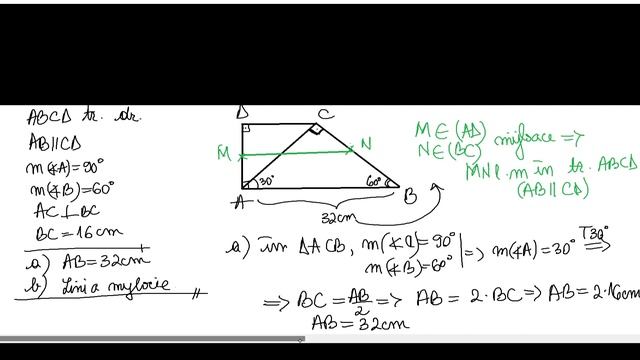 ABCD tr. dr.
AB||CD
m(∢A)=90°
m(∢B)=60°
AC⊥BC
BC=16cm
a) AB=32cm
b) Linia mijlocie
D C
M N
A 30° 60° B
32cm
M∈(AD)
N∈(BC) mijloace =>
MN l. m in tr. ABCD
(AB||CD)
a) în ΔACB, m(∢C)=90°
m(∢B)=60° | => m(∢A)=30° T30° =>
=> BC=AB/2 => AB=2·BC => AB=2·16cm
AB=32cm